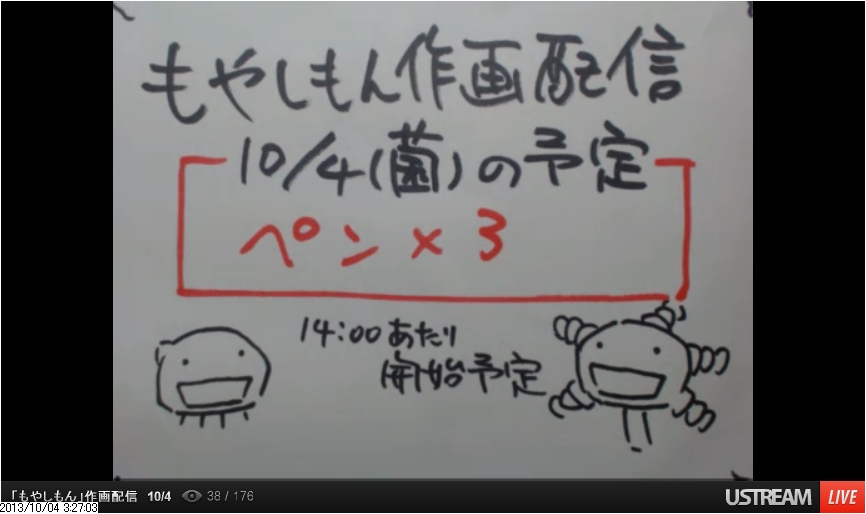 もやしもん作画配信
10/4(菌)の予定
ペン×3
14:00あたり
開始予定
「もやしもん」作画配信 10/4 38 / 176 USTREAM LIVE
2013/10/04 3:27:03